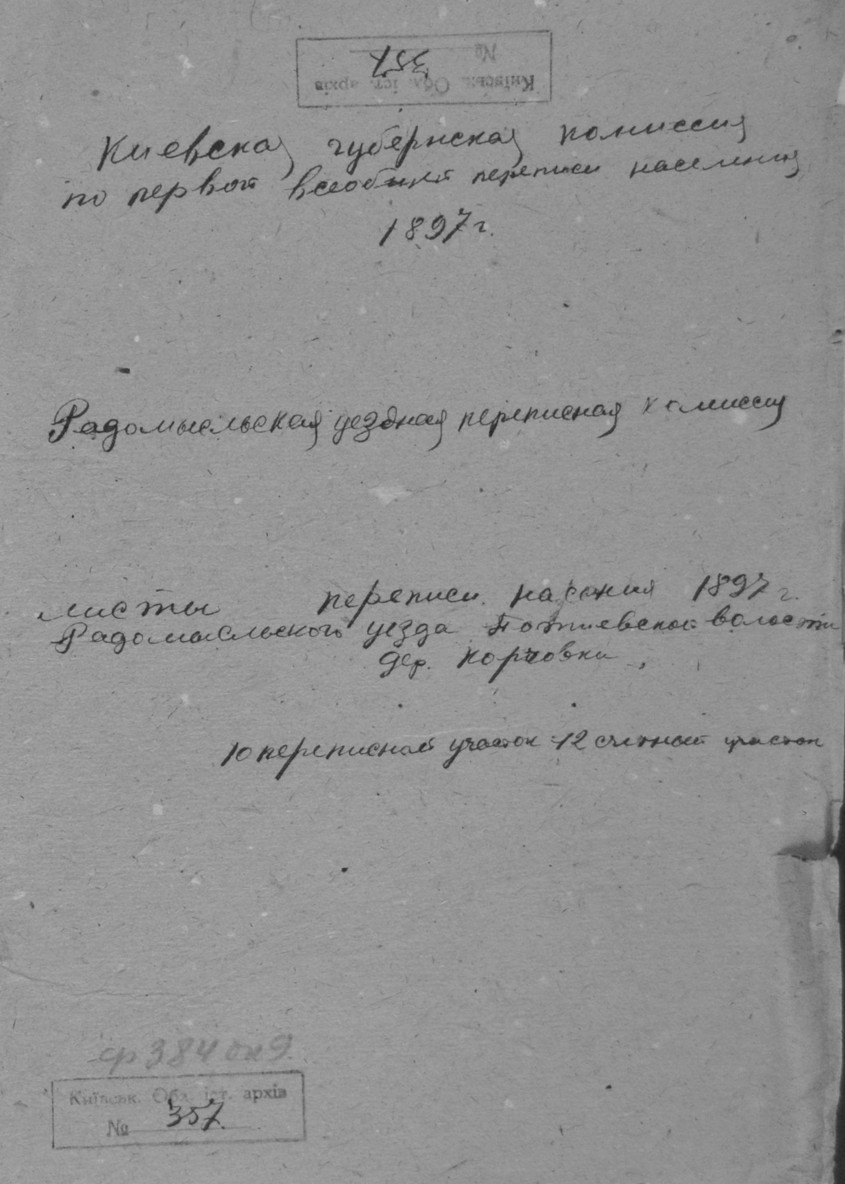 Київськ. Обл. іст. архів
№ 357
Киевская губернская комиссия
по первой всеобщей переписи населения
1897 г.
Радомысльская уездная переписная комиссия
листы переписи насения 1897 г.
Радомысльского уезда Потиевской волости
дер. Корчовки
10 переписной участок 12 счетный участок
ф 384 оп 9
Київськ. Обл. іст. архів
№ 357